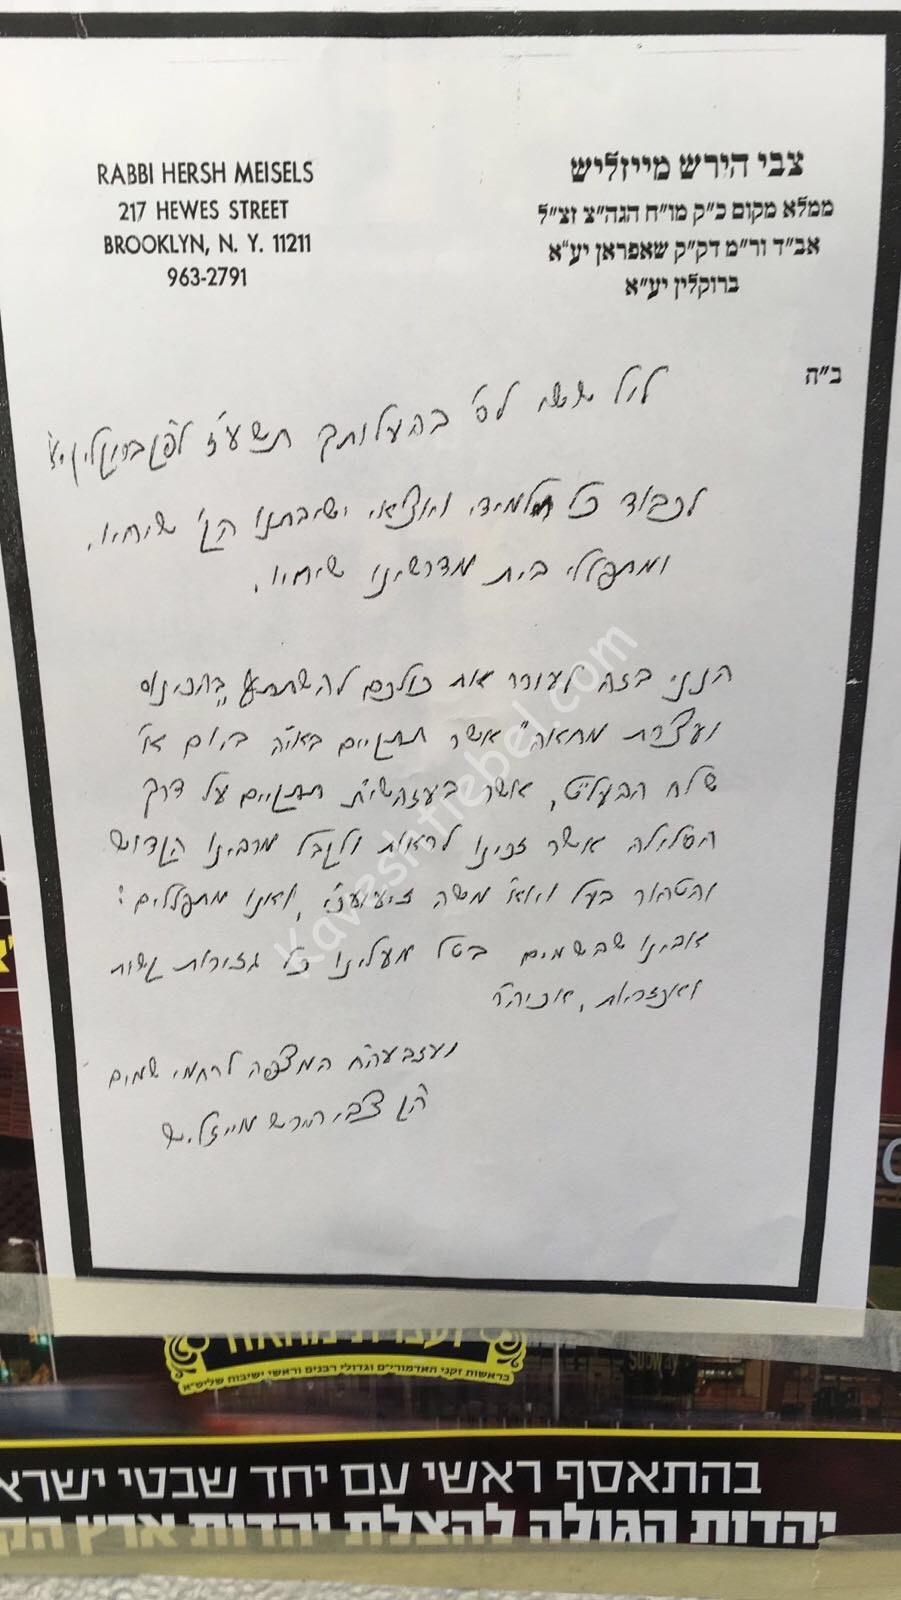 RABBI HERSH MEISELS
217 HEWES STREET
BROOKLYN, N. Y. 11211
963-2791
צבי הירש מייזליש
ממלא מקום כ"ק מו"ח הגה"צ זצ"ל
אב"ד ור"מ דק"ק שאפראן יע"א
ברוקלין יע"א
ב"ה
ליל ששי לס' בהעלותך תשע"ז לפ"ק ברוקלין יע"א
לכבוד כל תלמידי ויוצאי ישיבתנו הק' שיחיו,
ומתפללי בית מדרשינו שיחיו.
הנני בזה לעורר את כולכם להשתתף "בהכינוס
ועצרת מחאה" אשר תתקיים באי"ה ביום א'
שלח הבעל"ט, אשר בעזהשי"ת תתקיים על דרך
הסלולה אשר זכינו לראות ולקבל מרבינו הקדוש
והטהור בעל ויואל משה זי"ע, ואנו מתפללים:
אבינו שבשמים בטל מעלינו כל גזירות קשות
ואכזריות, אכיה"ר
המצפה לרחמי שמים
הק' צבי הירש מייזליש
Kaveshtiebel.com
ועצרת מחאה
בראשות זקני האדמורי"ם וגדולי רבנים וראשי ישיבות שליט"א
SUBWAY
בהתאסף ראשי עם יחד שבטי ישרא
יהדות הגולה להצלת יהדות ארץ הק